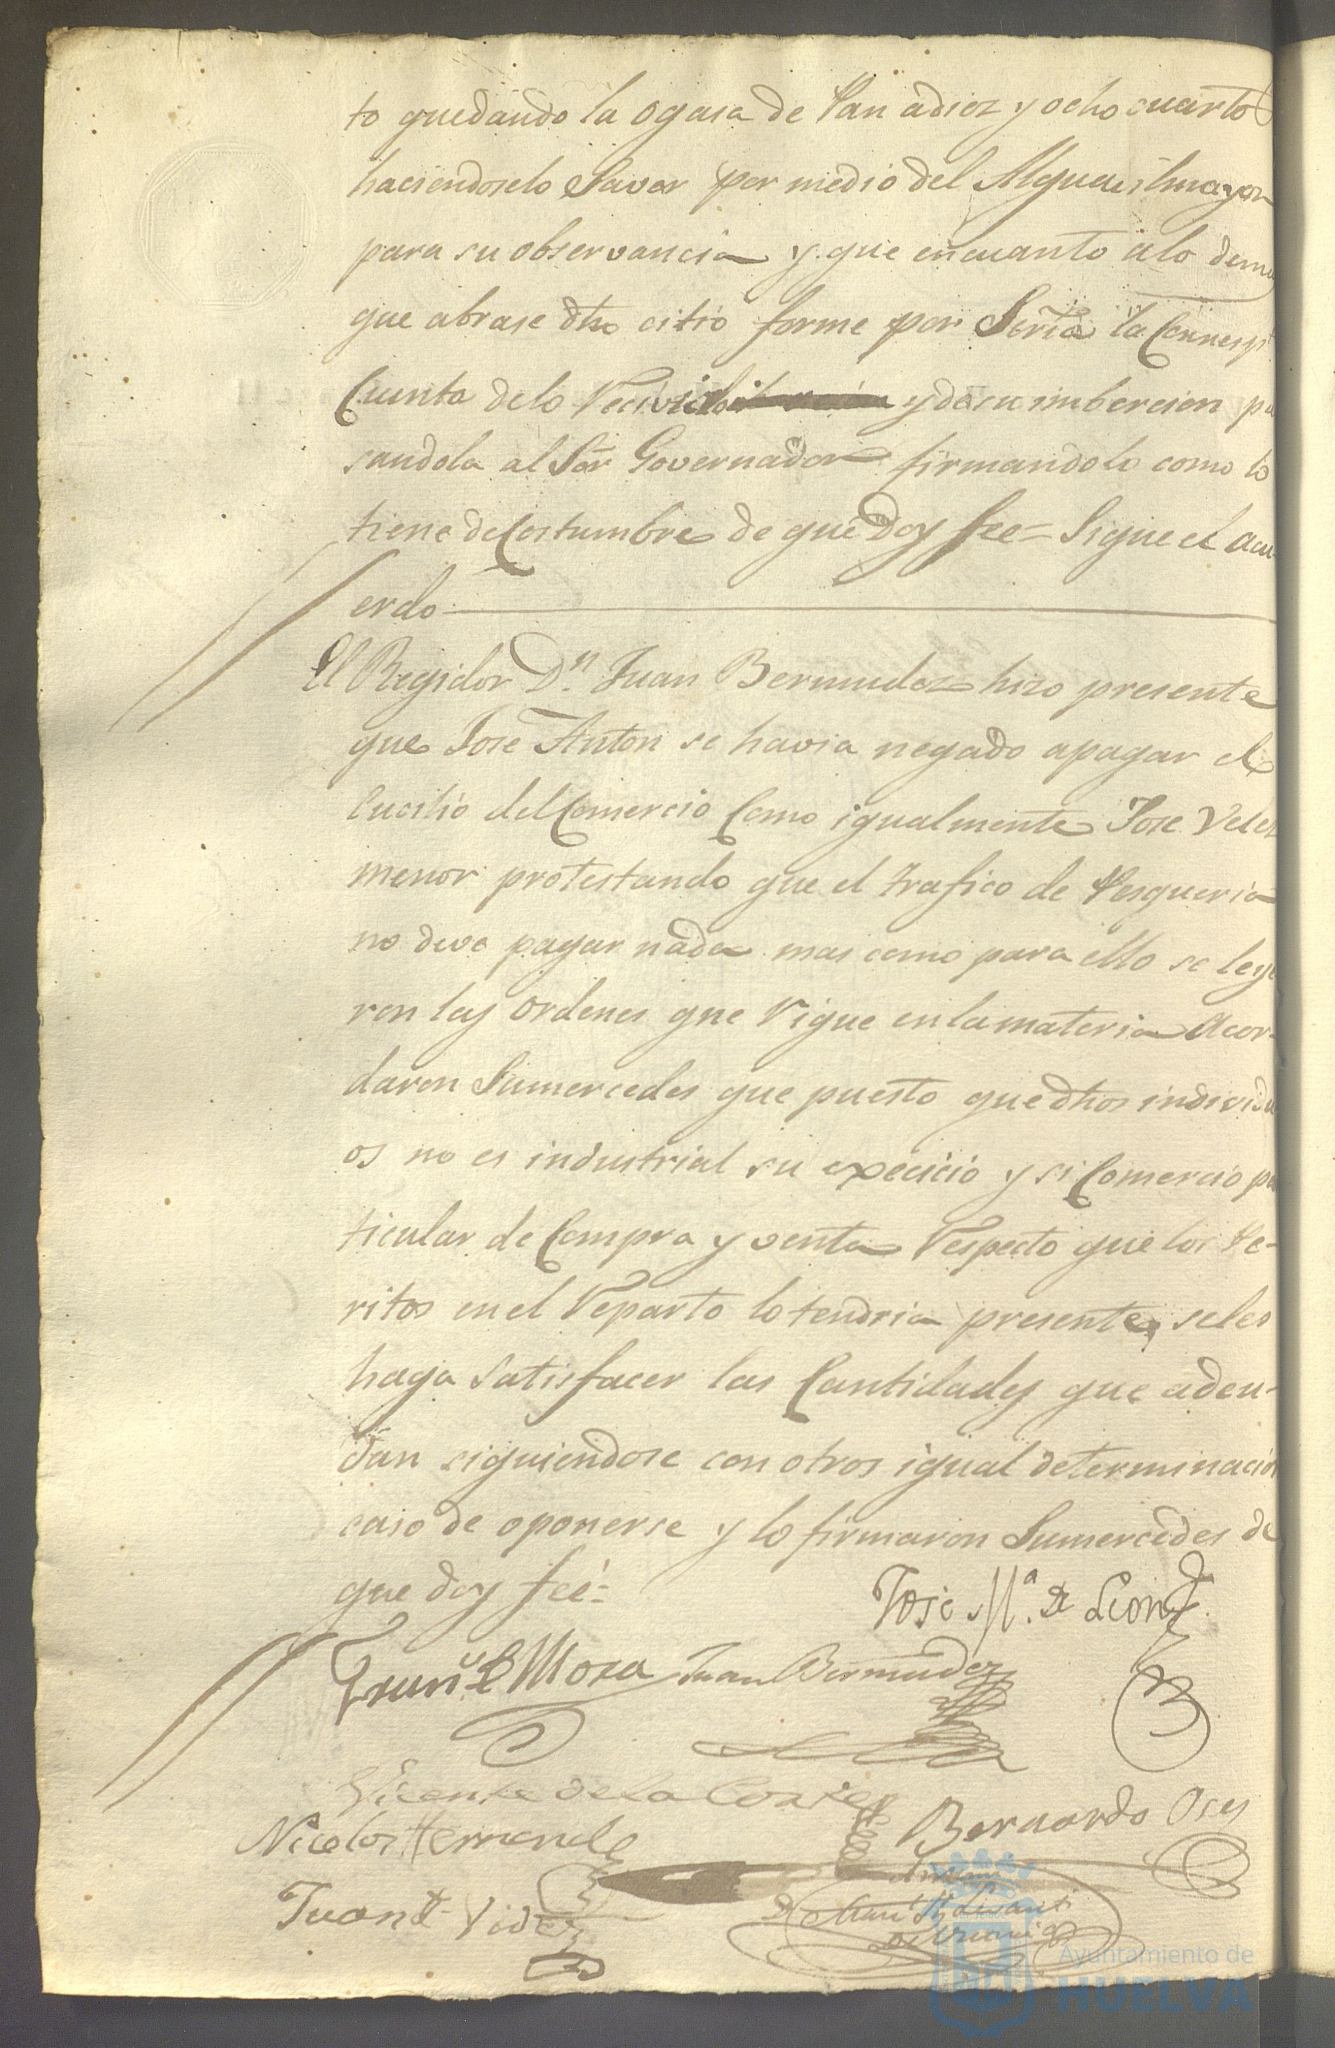 to quedando la ogasa de Pan adiez y ocho cuarto
haciendoselo Saver por medio del Alguacilmayor
para su observancia y que encuanto alo dema
que abrase dho citio forme por Señia la
Cuenta delo Recivido y de su imbercion pa
sandola al Sor Governador firmandolo como lo
tiene de Costumbre de que Doy fee = Sigue el acu-
erdo
El Regidor Dn. Juan Bermudez hizo presente
que Jose Anton se havia negado apagar el
del Comercio Como igualmente Jose Velez
menor protestando que el trafico de Pesqueria
no deve pagar nada mas como para ello se leye
ron las ordenes que Rigue enlamateria Acor-
daron Sumercedes que puesto quedhos individu
os no es industrial su execicio y si Comercio pa
ticular de Compra y venta Respecto que los Pe-
ritos en el Reparto lo tendria presente, seles
haga Satisfacer las Cantidades que adeu-
dan siguiendose con otros igual determinacion
caso de oponerse y lo firmaron Sumercedes de
que doy feé =
Jose Ma. de Leon
Mora Juan Bermudez
Vicente de la Corte
Bernardo Oses
Nicolas Hernande
Juan Videz
Ayuntamiento de
HUELVA